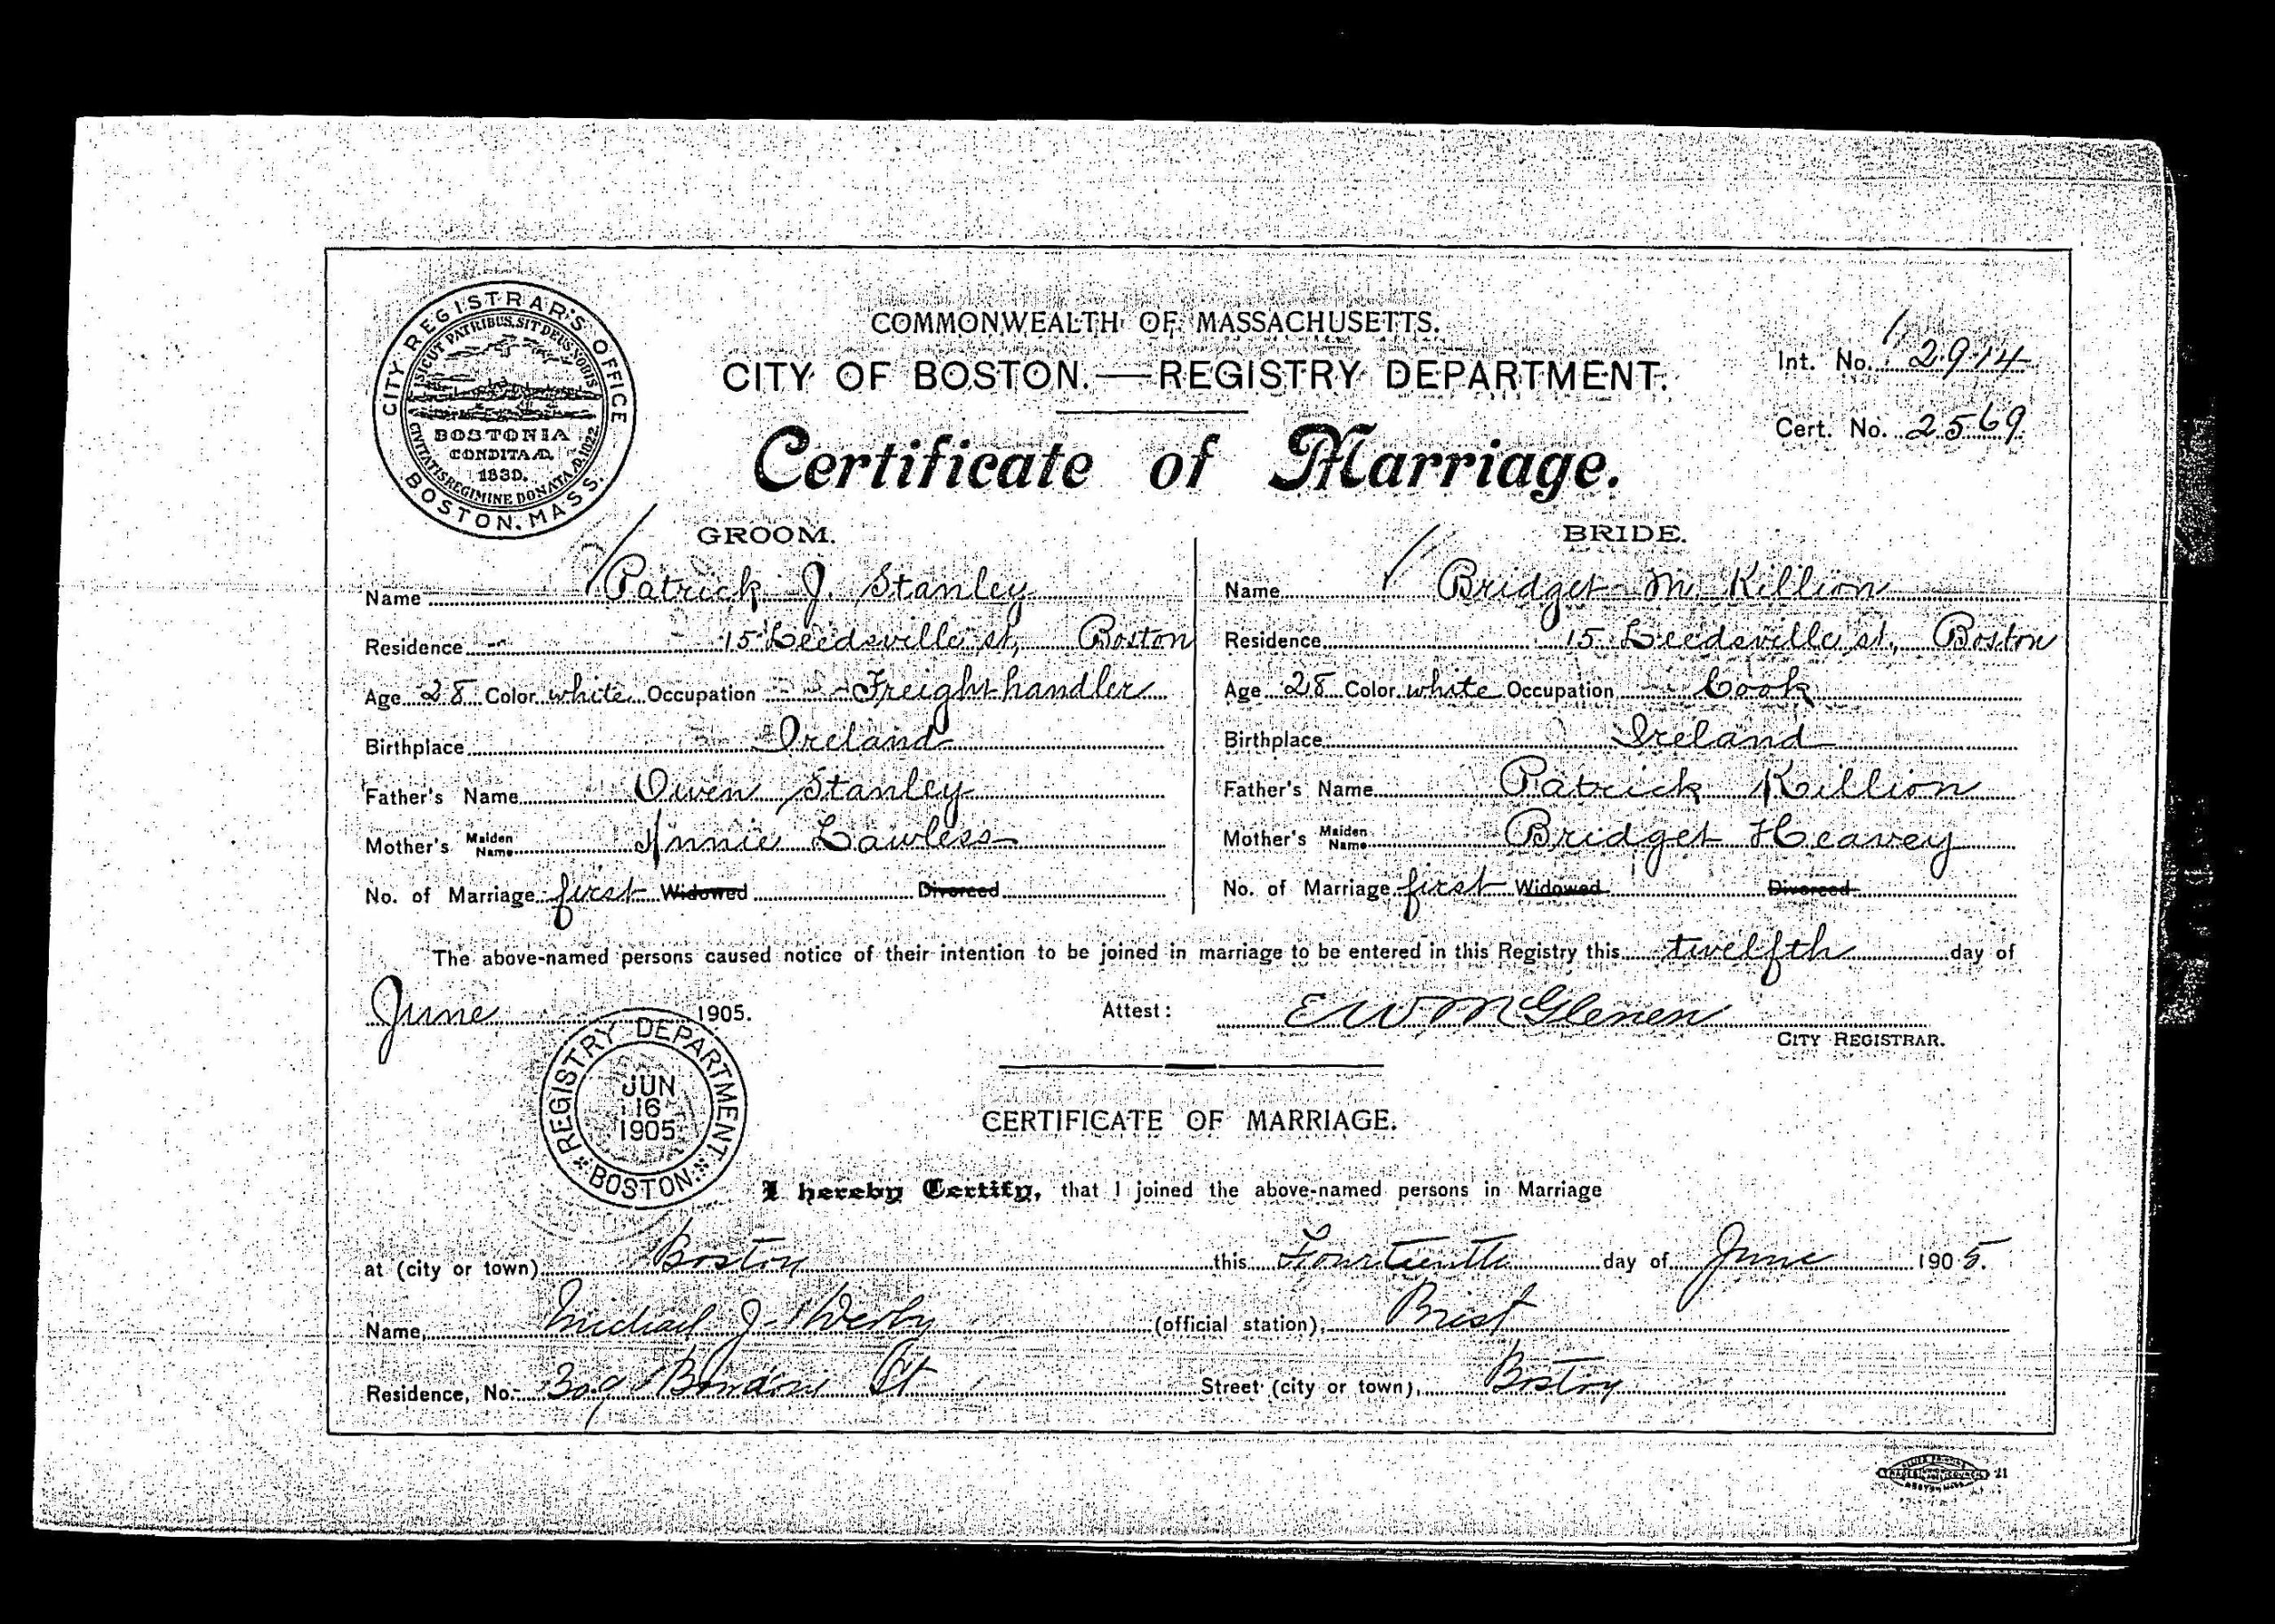 CITY REGISTRAR'S OFFICE
BOSTON, MASS.
SICUT PATRIBUS, SIT DEUS NOBIS
CIVITATIS REGIMINE DONATA A.D. 1822.
BOSTONIA
CONDITA A.D.
1630.
COMMONWEALTH OF MASSACHUSETTS.
CITY OF BOSTON.—REGISTRY DEPARTMENT.
Int. No. 2914
Cert. No. 2569
Certificate of Marriage.
GROOM.
Name Patrick J. Stanley
Residence 15 Leedsville st, Boston
Age 28 Color white Occupation Freight handler
Birthplace Ireland
Father's Name Owen Stanley
Mother's Maiden Name Annie Lawless
No. of Marriage first Widowed Divorced
BRIDE.
Name Bridget M. Killion
Residence 15 Leedsville st, Boston
Age 28 Color white Occupation Cook
Birthplace Ireland
Father's Name Patrick Killion
Mother's Maiden Name Bridget Heavey
No. of Marriage first Widowed Divorced
The above-named persons caused notice of their intention to be joined in marriage to be entered in this Registry this twelfth day of
June 1905.
Attest: E W McGlenen
CITY REGISTRAR.
REGISTRY DEPARTMENT
JUN
16
1905
BOSTON
CERTIFICATE OF MARRIAGE.
I hereby Certify, that I joined the above-named persons in Marriage
at (city or town) Boston this Fourteenth day of June 1905.
Name, Michael J. (official station), Priest
Residence, No. St Street (city or town), Boston
21